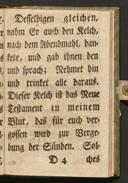 Desselbigen gleichen,
nahm Er auch den Kelch,
nach dem Abendmahl, dan-
kete, und gab ihnen den
und sprach: Nehmet hin
und trinket alle daraus.
Dieser Kelch ist das Neue
Testament in meinem
Blut, das für euch ver-
gossen wird zur Verge-
bung der Sünden. Sol-
D 4 ches